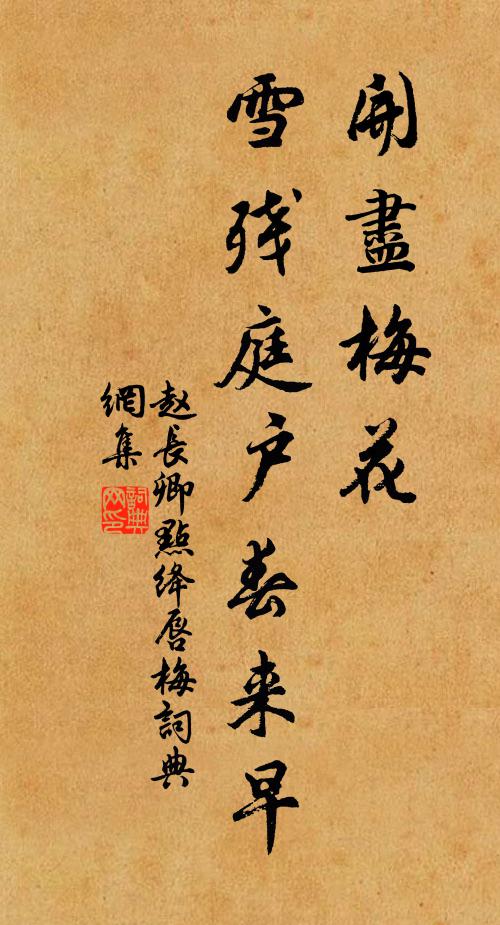 開盡梅花
雪残庭户春来早
赵長卿點绛唇梅詞典
網集
詞典
网印